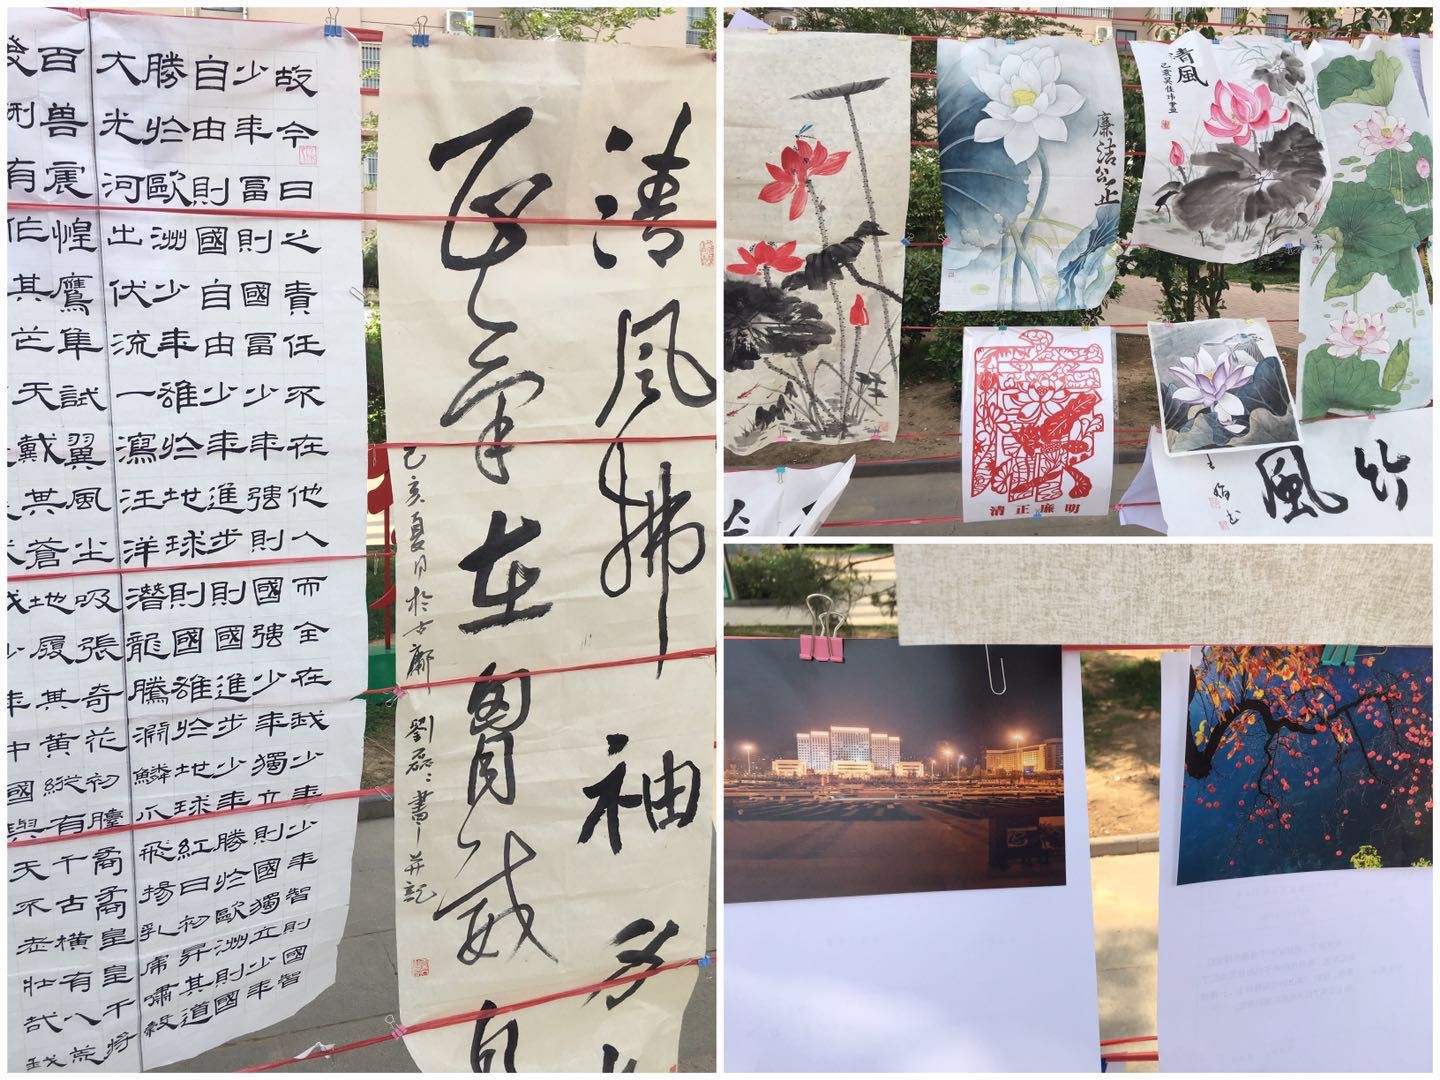 故今日之責任不在他人而全在我少年少年智則國智
少年冨則國冨少年強則國強少年獨立則國獨立少年
自由則國自由少年進步則國進步少年勝於歐洲則國
勝於歐洲少年雄於地球則國雄於地球紅日初昇其道
大光河出伏流一瀉汪洋潛龍騰淵鱗爪飛揚乳虎嘯穀
百獸震惶鷹隼試翼風塵吸張奇花初臆矞矞皇皇干將
硎有作其芒天戴其蒼地履其黃縱有千古橫有八荒
年中國與天不老壯哉我
清風拂袖
正氣在胸威自
己亥夏月於古鄘 劉磊〻書并記
廉潔公正
清風
清正廉明
竹風